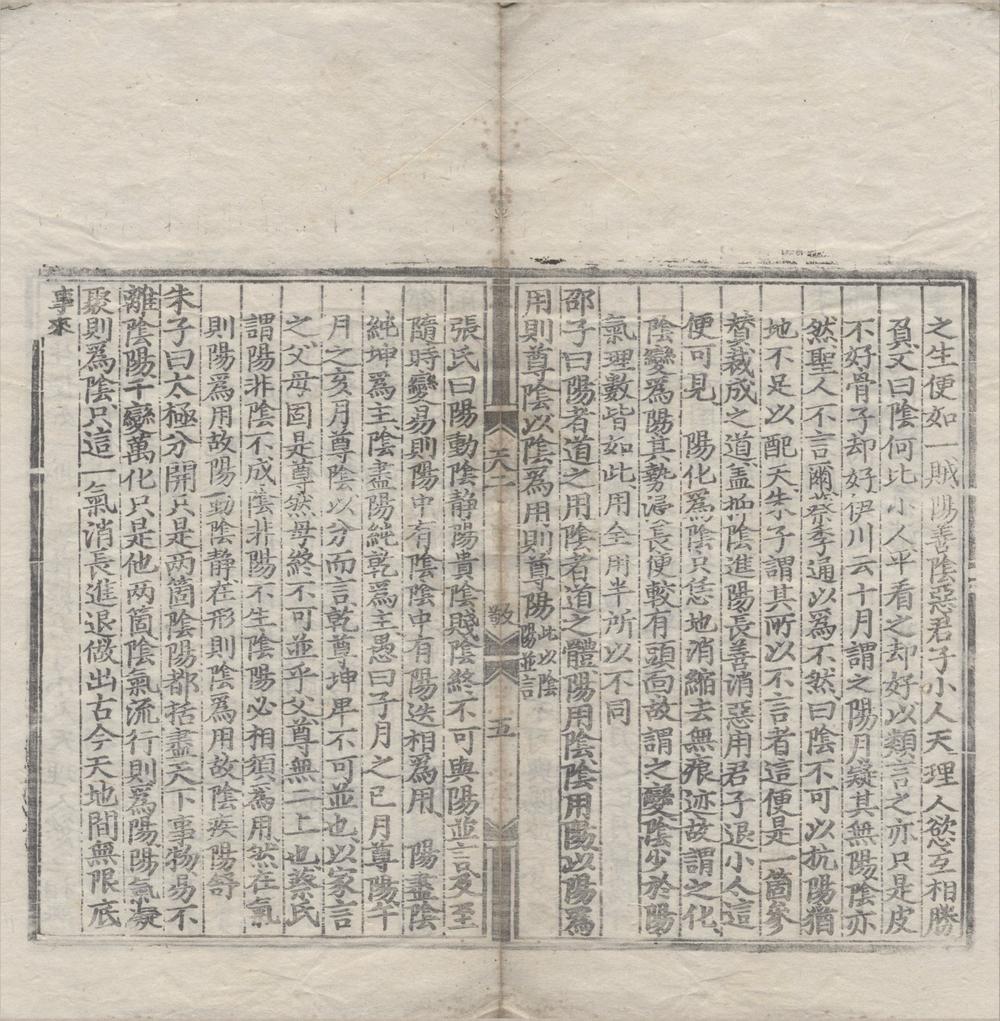 之生便如一賊陽善陰惡君子小人天理人慾互相勝
負又曰陰何比小人平看之却好以類言之亦只是皮
不好骨子却好伊川云十月謂之陽月疑其無陽陰亦
然聖人不言爾蔡季通以爲不然曰陰不可以抗陽猶
地不足以配天朱子謂其所以不言者這便是一箇參
贊裁成之道盖抑陰進陽長善消惡用君子退小人這
便可見 陽化爲陰只恁地消縮去無痕迹故謂之化
陰變爲陽其勢浸長便較有頭面故謂之變陰少於陽
氣理數皆如此用全用半所以不同
邵子曰陽者道之用陰者道之體陽用陰陰用陽以陽爲
用則尊陰以陰爲用則尊陽此以陰陽並言
天二 敬 五
張氏曰陽動陰静陽貴陰賤陰終不可與陽並言爰至
隨時變易則陽中有陰陰中有陽迭相爲用 陽盡陰
純坤爲主陰盡陽純乾爲主愚曰子月之巳月尊陽午
月之亥月尊陰以分而言乾尊坤卑不可並也以家言
之父母固是尊然母終不可並乎父尊無二上也蔡氏
謂陽非陰不成陰非陽不生陰陽必相須爲用然在氣
則陽爲用故陽動陰静在形則陰爲用故陰疾陽舒
朱子曰太極分開只是两箇陰陽都括盡天下事物易不
離陰陽千變萬化只是他两箇陰氣流行則爲陽陽氣凝
聚則爲陰只這一氣消長進退做出古今天地間無限底
事來